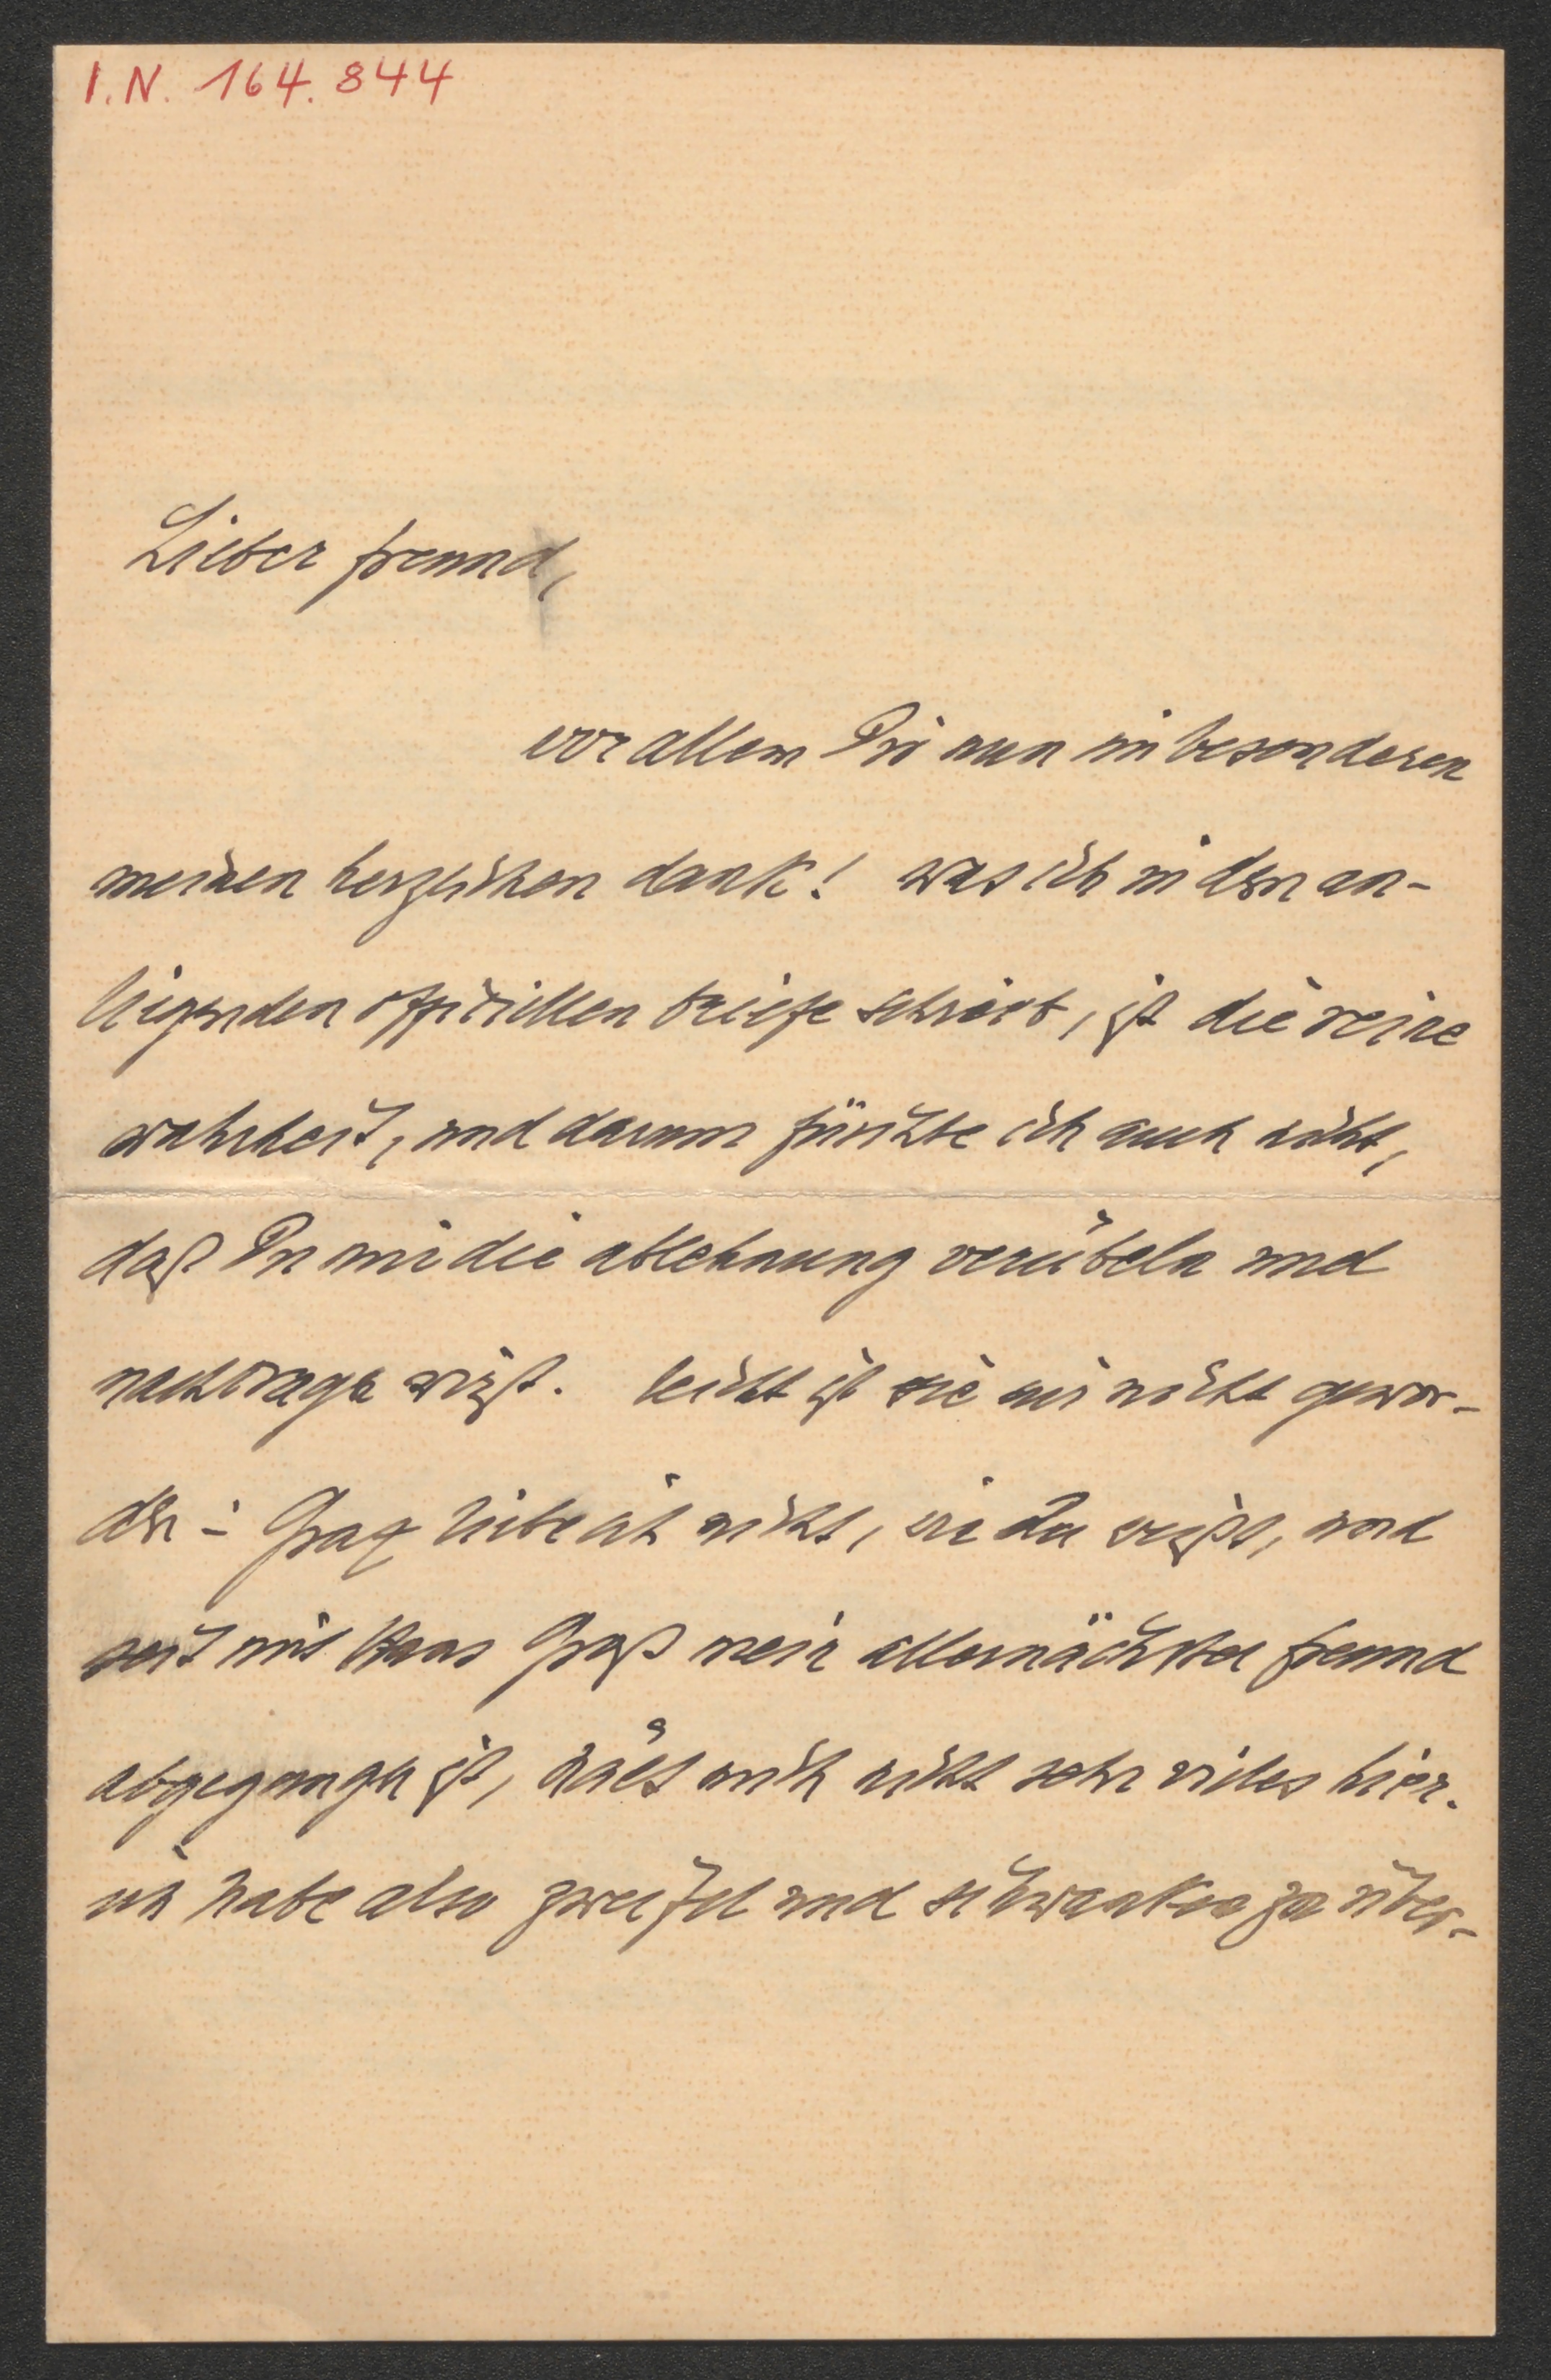 I.N. 164.844
Lieber freund,
vor allem Dir nun im besonderen
meinen herzlichen dank! was ich in dem an-
liegenden officiellen briefe schrieb, ist die reine
wahrheit, und darum fürchte ich auch nicht,
daß Du mir die ablehnung verübeln und
nachtragen wirst. leicht ist sie mir nicht gewor-
den: Graz liebe ich nicht, wie du weißt, und
seit mir Hans Groß mein allernächster freund
abgegangen ist, hält mich nicht sehr vieles hier.
ich habe also zweifel und schwanken zu über-